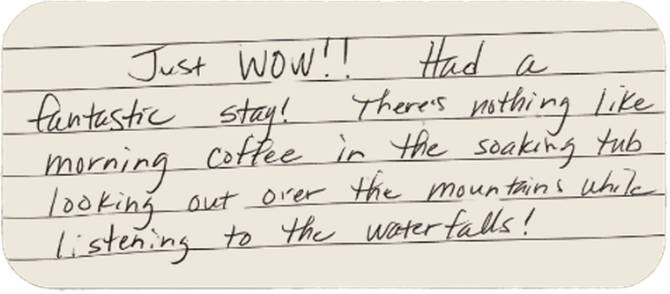 Just WOW!! Had a
fantastic stay! There's nothing like
morning coffee in the soaking tub
looking out over the mountains while
listening to the waterfalls!